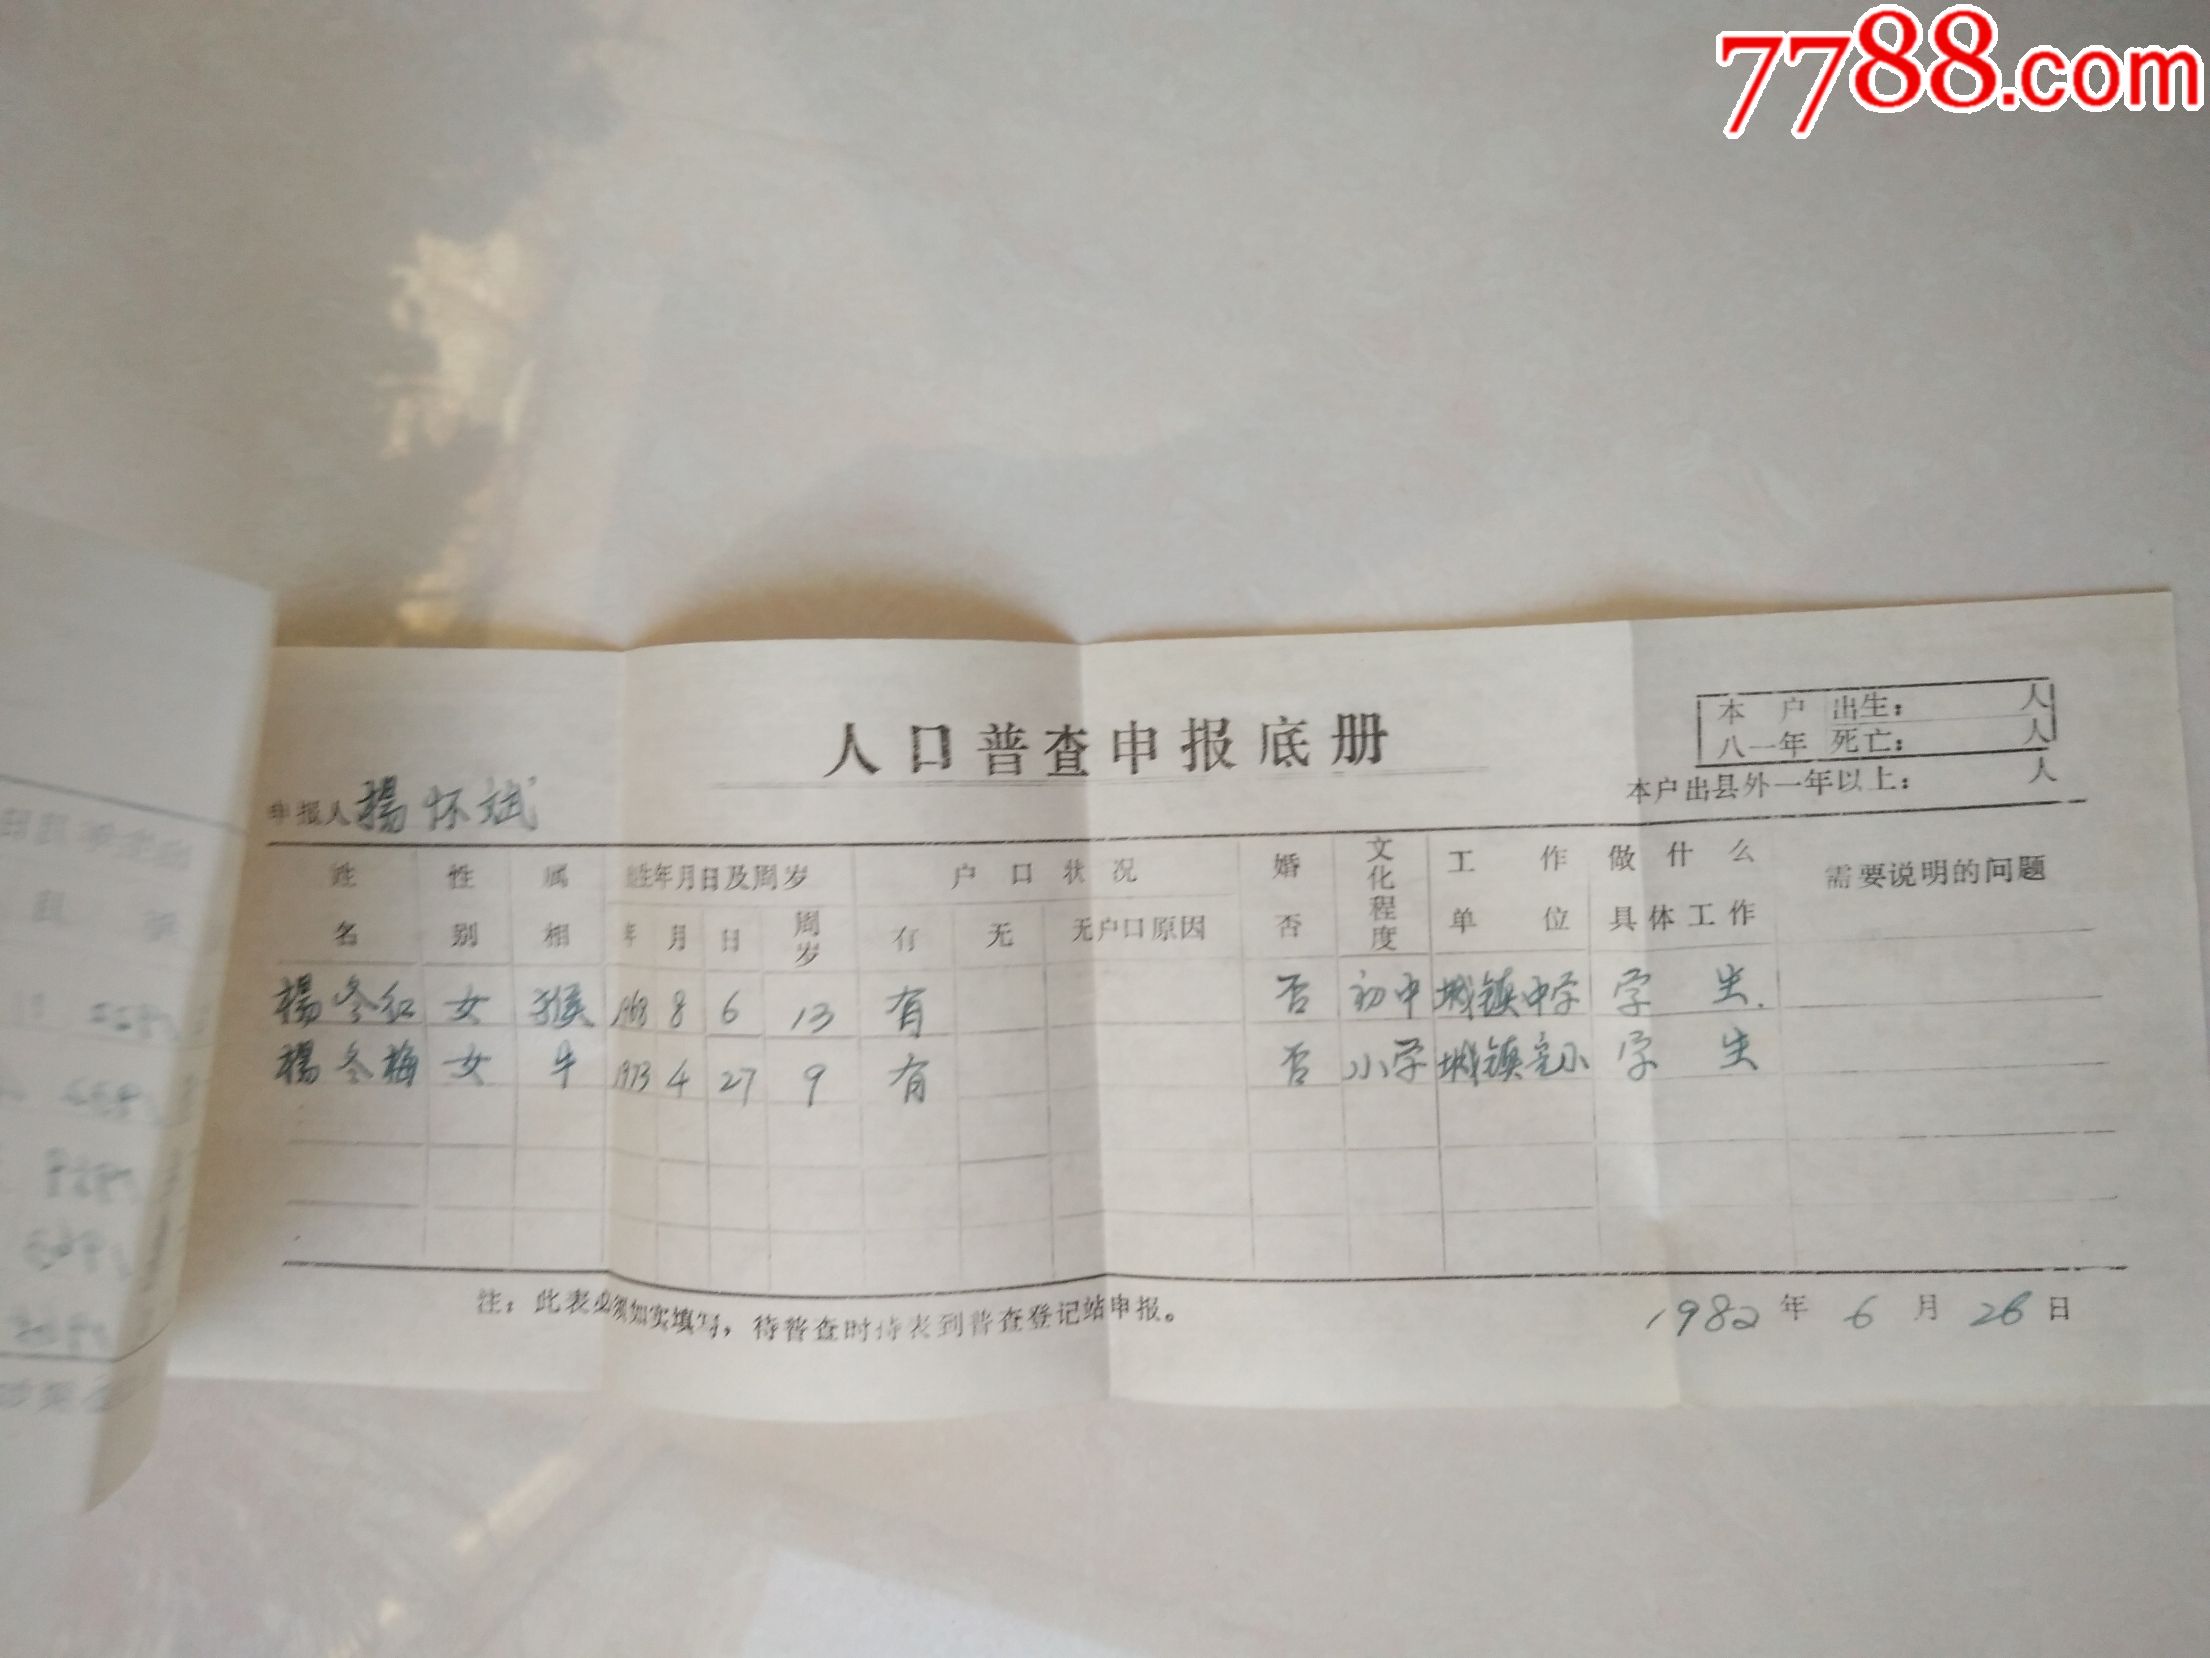 7788.com
人口普查申报底册
本户 出生： 人
八一年 死亡： 人
本户出县外一年以上： 人
申报人 楊怀斌
姓名 性别 属相 出生年月日及周岁 户口状况 婚否 文化程度 工作单位 做什么具体工作 需要说明的问题
年 月 日 周岁 有 无 无户口原因
楊冬红 女 猴 1968 8 6 13 有 否 初中 城镇中学 学生
楊冬梅 女 牛 1973 4 27 9 有 否 小学 城镇完小 学生
注：此表必须如实填写，待普查时持表到普查登记站申报。
1982年6月26日